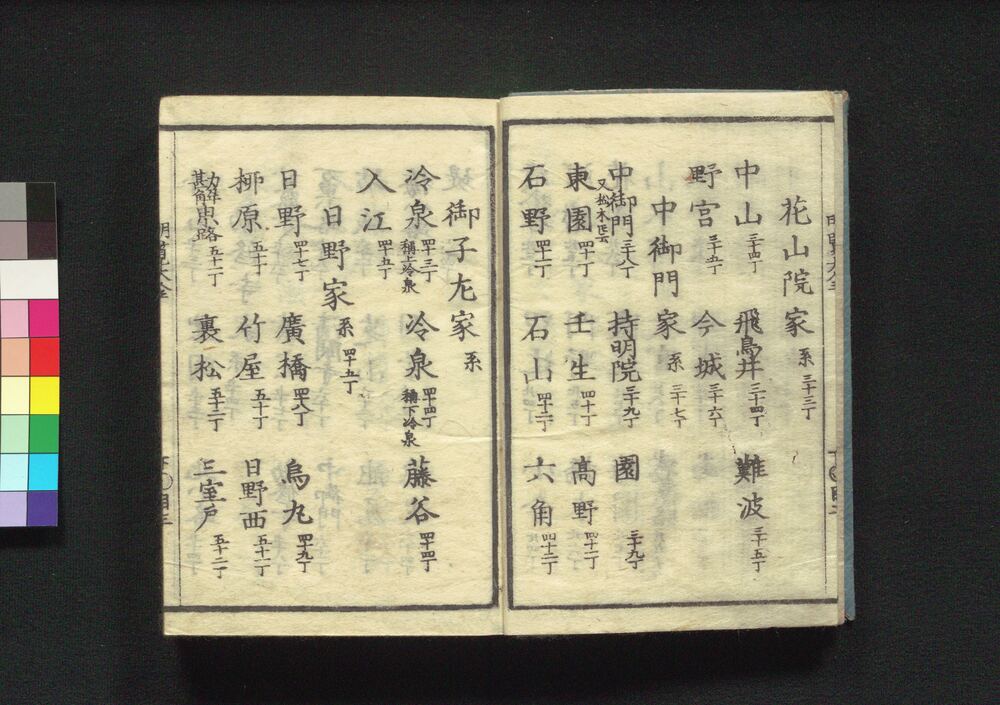 花山院家 系 三十三丁
中山 三十四丁 飛鳥井 三十四丁 難波 三十五丁
野宮 三十五丁 今城 三十六丁
中御門家 系 三十七丁
中御門 三十八丁 又松木トモ云 持明院 三十九丁 園 三十九丁
東園 四十丁 壬生 四十丁 高野 四十一丁
石野 四十一丁 石山 四十二丁 六角 四十二丁
御子左家 系
冷泉 四十三丁 稱上冷泉 冷泉 四十四丁 稱下冷泉 藤谷 四十四丁
入江 四十五丁
日野家 系 四十五丁
日野 四十七丁 廣橋 四十八丁 烏丸 四十九丁
柳原 五十丁 竹屋 五十丁 日野西 五十一丁
勘解由小路 五十一丁 裏松 五十二丁 三室戸 五十二丁